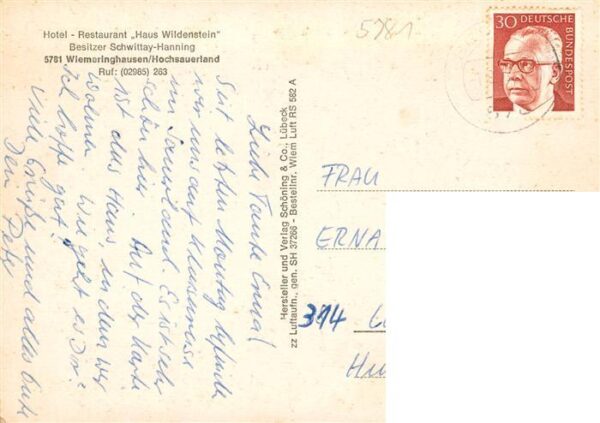 Hotel - Restaurant „Haus Wildenstein"
Besitzer Schwittay-Hanning
5781 Wiemeringhausen/Hochsauerland
Ruf: (02985) 263
5781
30 DEUTSCHE
BUNDESPOST
Liebe Tante Erna!
Seit letzten Montag befinde
wir uns auf Klassenreise
im Sauerland. Es ist sehr
schön hier. Auf der Karte
ist das Haus in dem wir
wohnen. Wie geht es Dir?
Ich hoffe gut!
Viele Grüße und alles Gute
Dein Peter
Hersteller und Verlag Schöning & Co., Lübeck
zz Luftaufn., gen. SH 37266 - Bestellnr. Wiem Luft RS 582 A
FRAU
ERNA
314